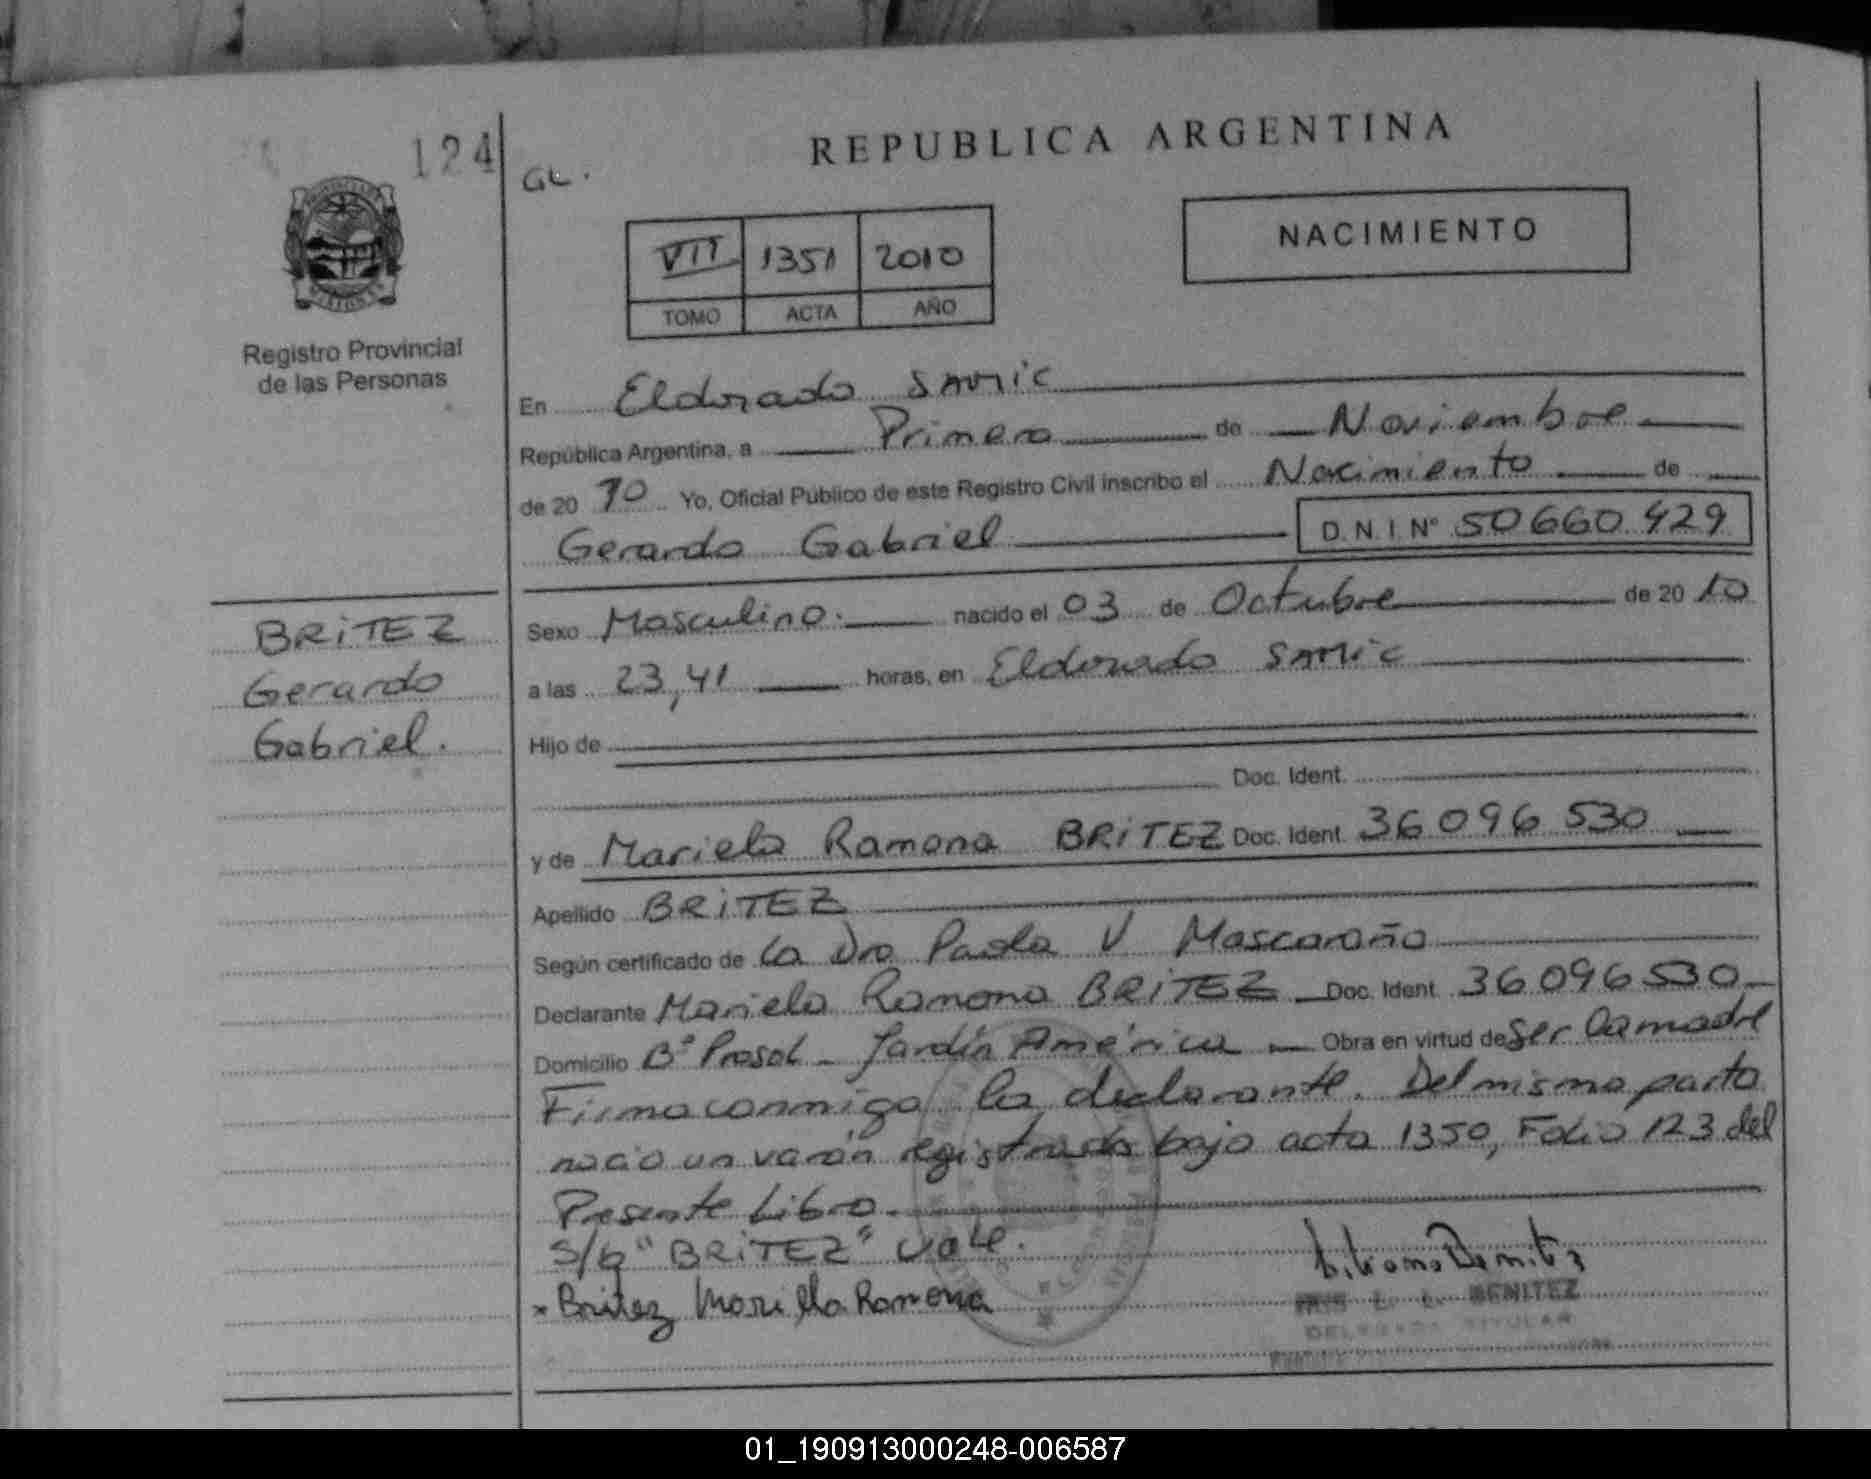 124
REPUBLICA ARGENTINA
GL.
NACIMIENTO
VII 1351 2010
TOMO ACTA AÑO
Registro Provincial
de las Personas
En Eldorado SAMIC
República Argentina, a Primero de Noviembre
de 20 10 Yo, Oficial Público de este Registro Civil inscribo el Nacimiento de
Gerardo Gabriel D.N.I Nº 50660 429
BRITEZ
Gerardo
Gabriel.
Sexo Masculino. nacido el 03 de Octubre de 20 10
a las 23,41 horas, en Eldorado SAMIC
Hijo de
Doc. Ident.
y de Mariela Ramona BRITEZ Doc. Ident. 36 096 530
Apellido BRITEZ
Según certificado de la Dra Paola V Mascaraño
Declarante Mariela Ramona BRITEZ Doc. Ident. 36 096 530
Domicilio Bº Prosol - Jardín América Obra en virtud de Ser la madre
Firma conmigo la declarante. Del mismo parto
nació un varón registrado bajo acta 1350, Folio 123 del
Presente Libro.
S/b "BRITEZ" vale.
Britez Mariela Ramona
BENITEZ
DELEGADA TITULAR
01_190913000248-006587